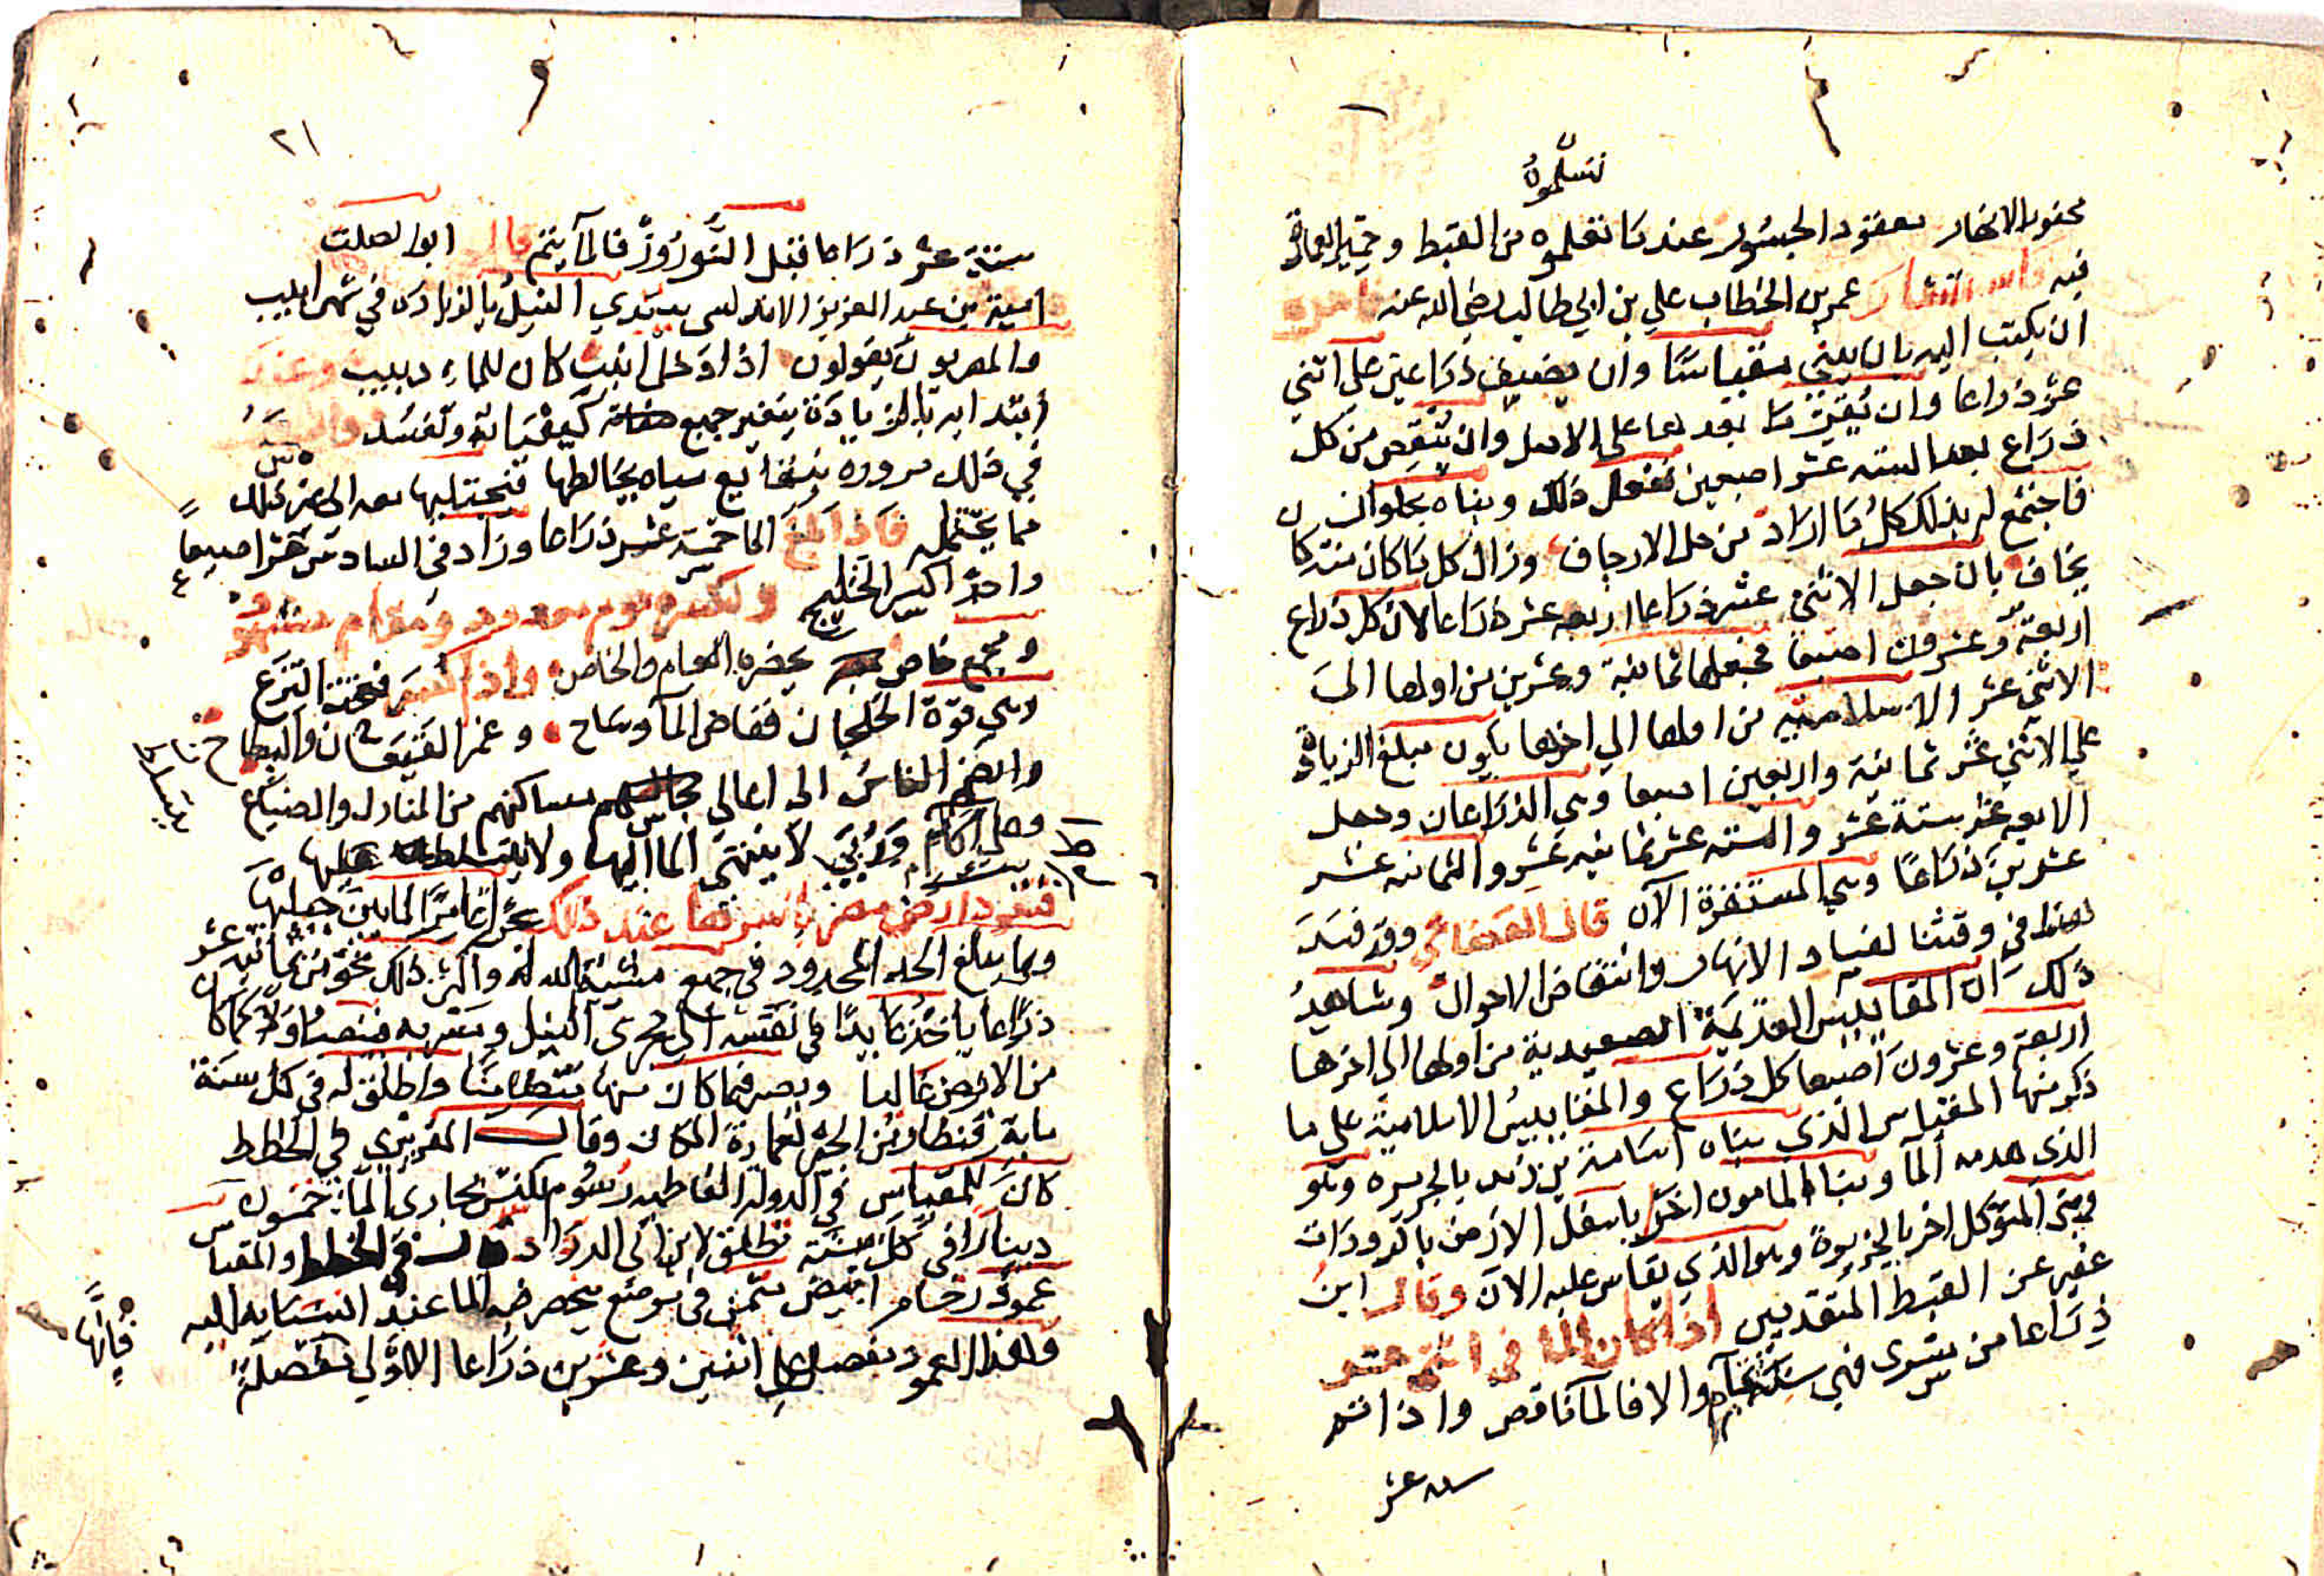 نتسلموه
بحفور الانهار بعقود الجسور عند ما نتسلموه من القبط وخمير العمارة
فيه فاستشار عمر بن الخطاب علي بن ابي طالب رضي الله عنه فامره
ان يكتب اليه بان يبني مقياسا وان يضيف ذراعين على اثني
عشر ذراعا وان يقر ما بعدهما على الاصل وان ينقص من كل
ذراع بعد الستة عشر اصبعين ففعل ذلك وبناه بحلوان
فاجتمع له بذلك كل ما اراد من حل الارجاف وزال كل ما كان منه
يخاف بان جعل الاثني عشر ذراعا اربعه عشر ذراعا لان كل ذراع
اربعة وعشرون اصبعا فجعلها ثمانية وعشرين من اولها الى
الاثني عشر الاسلامية من اولها الي اخرها يكون مبلغ الزيادة
علي الاثني عشر ثمانية واربعين اصبعا وهي الذراعان وجعل
الاربعه عشر ستة عشر والسته عشر ثمانيه عشر والثمانيه عشر
عشرين ذراعا وهي المستقرة الآن قال القضاعي وقد فسد
في وقتنا لفساد الانهار وانتقاض الاحوال وشاهد
ذلك ان المقاييس القديمة الصعيدية من اولها الى اخرها
اربعة وعشرون اصبعا كل ذراع والمقاييس الاسلامية على ما
ذكر منها المقياس الذي بناه اسامة بن زيد بالجزيره وهو
الذي هدمه الما وبنا المامون اخر باسفل الارض بالبرودات
وبنى المتوكل اخر بالجزيرة وهو الذي يقاس عليه الان وقال ابن
عفير عن القبط المتقدمين اذا كان الما في اثني عشر
ذراعا من مسرى فهي سنة ماء والا فالما ناقص واذا تم
سته عشر
٢١
ستة عشر ذراعا قبل النوروز فالما يتم قال ابو الصلت
امية بن عبد العزيز الاندلسي يبتدي النيل بالزيادة في شهر ابيب
والمصريون يقولون اذا دخل ابيب كان للماء دبيب وعند
ابتدايه بالزيادة يتغير جميع كيفياته وتفسد والسبب
في ذلك مروره بنقايع مياه يخالطها فيجتلبها معه الى غير ذلك
مما يحتمله فاذا بلغ الما خمسة عشر ذراعا وزاد في السادس عشر اصبعا
واحدا كسر الخليج ولكسره يوم معدود ومقام مشهود
ومجتمع خاص يحضره العام والخاص واذا كسر فتحت الترع
وهي فوهة الخلجان ففاض الما وساح وغمر القيعان والبطاح
وانضم الناس الى اعالي مساكنهم من المنازل والضياع
وهي على اكام وربى لا ينتهي الما اليها ولا يتسلط عليها
فتعود ارض مصر باسرها عند ذلك بحرا غامرا لما بين جبليها
ريثما يبلغ الحد المحدود في جميع مشيئة الله له واكثر ذلك نحو من ثمانيه عشر
ذراعا ياخذ عايدا في نفسه الى مجرى النيل ومسربه فينصب اولا كما كان
من الارض عاليا ويصير فيما كان منها متطامنا واطلق له في كل سنة
ماية قنطار من الجير لعمارة المكان وقال المقريزي في الخطط
كان للمقياس في الدولة الفاطميه رسوم لكنس مجاري الما خمسون
دينارا في كل سنة تطلق لابن ابي الرداد قال في الخطط والمقياس
عمود رخام ابيض مثمن في موضع ينحصر فيه الما عند انسيابه اليه
وهذا العمود مفصل على اثنين وعشرين ذراعا الاولى مفصلة
فانها